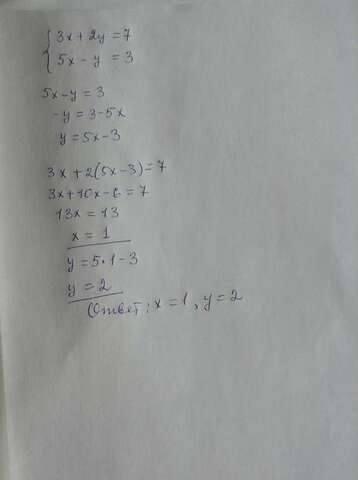 {3x+2y=7
5x-y=3
5x-y=3
-y=3-5x
y=5x-3
3x+2(5x-3)=7
3x+10x-6=7
13x=13
x=1
y=5·1-3
y=2
(Ответ: x=1, y=2